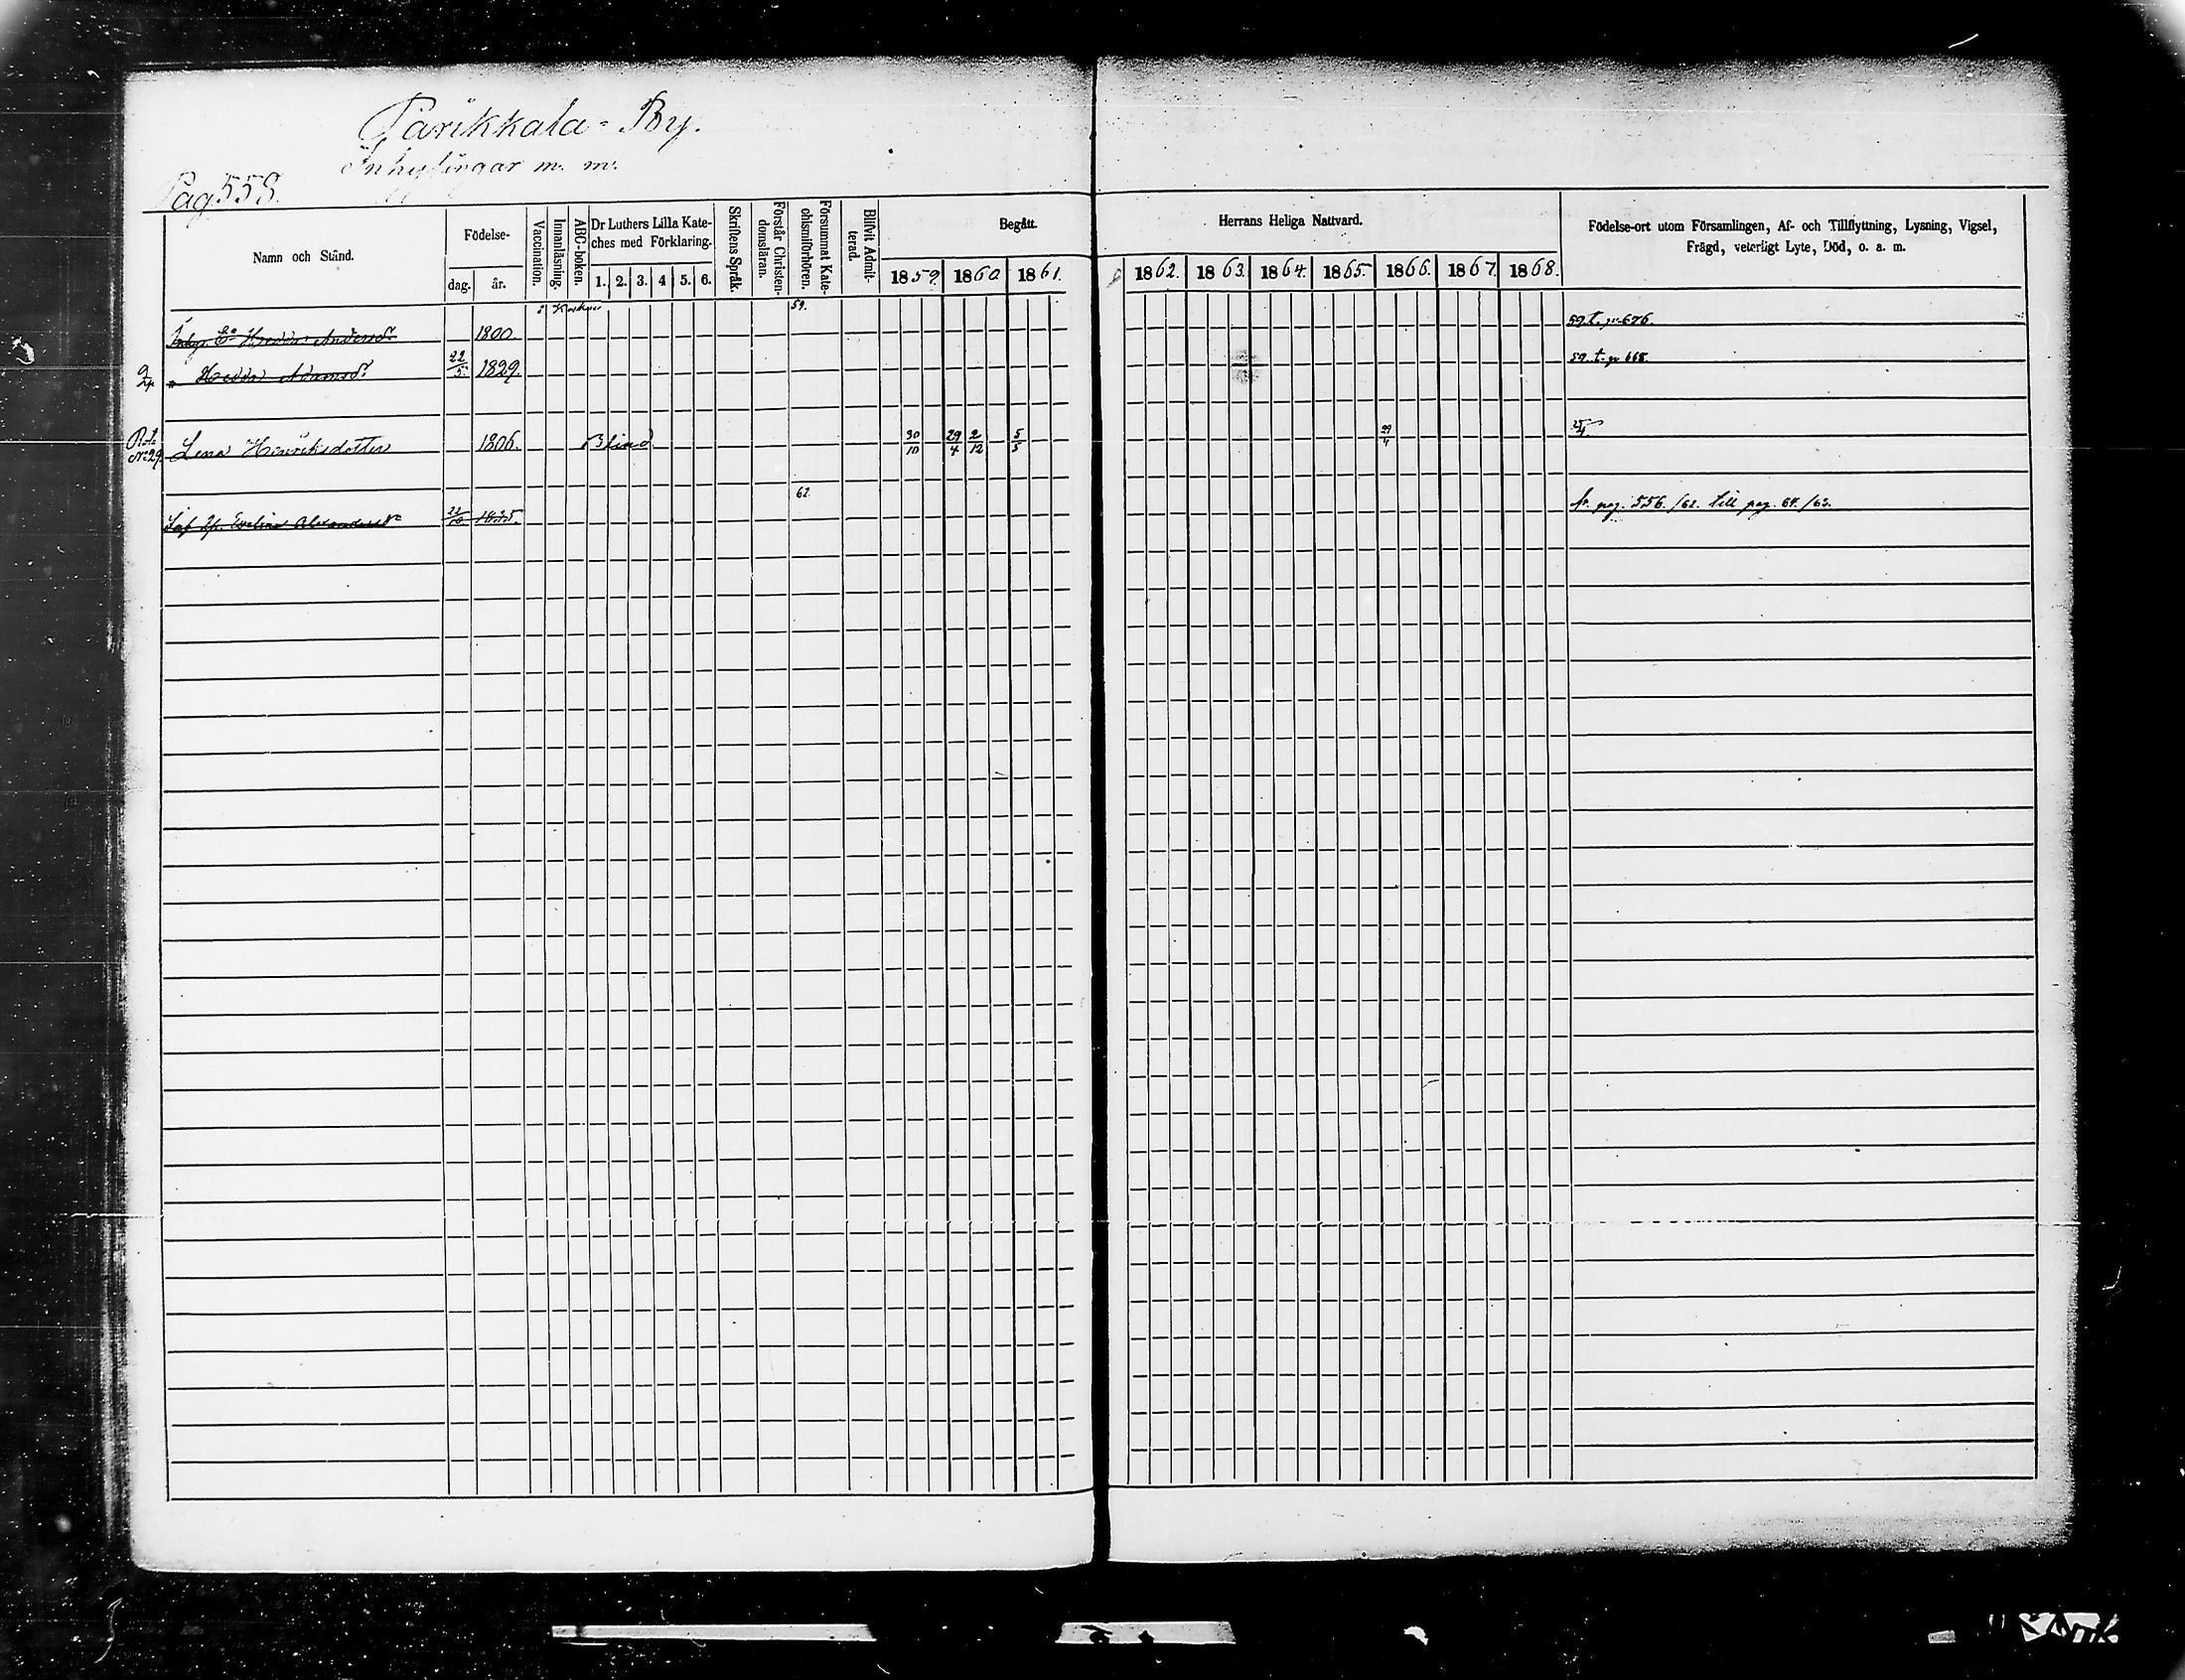 Parikkala-By.
Inhysingar m. m.
Pag. 558.
Namn och Stånd.
Födelse-
dag. år.
Vaccination.
Innanläsning.
ABC-boken.
Dr Luthers Lilla Kate-
ches med Förklaring.
1. 2. 3. 4 5. 6.
Skriftens Språk.
Förstår Christen-
domsläran.
Försummat Kate-
chismiförhören.
Blifvit Admit-
terad.
Begått. Herrans Heliga Nattvard.
1859. 1860 1861. 1862. 1863. 1864. 1865. 1866. 1867. 1868.
Födelse-ort utom Församlingen, Af- och Tillflyttning, Lysning, Vigsel,
Frägd, veterligt Lyte, Död, o. a. m.
Hedda Andersdr 1800. 59. 59. t. p. 676.
" Hedda Adamsdr 22/5. 1829. 59. t. p 668.
No 29. Lena Henriksdotter 1806. Blind 30/10 29/4 2/12 5/5 29/4
Evelina Alexandersdr 22/10 1835. 62. fr. pag. 556. /62. till pag. 64. /63.